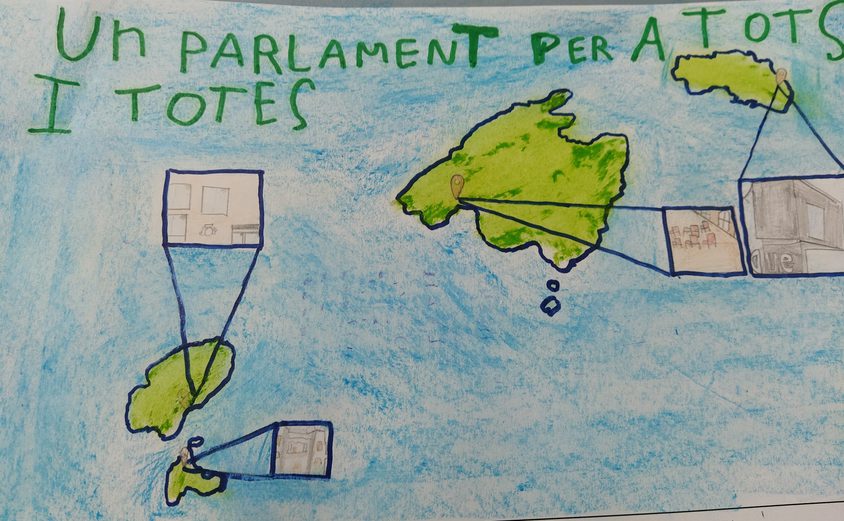 Un PARLAMENT PER A TOTS
I TOTES